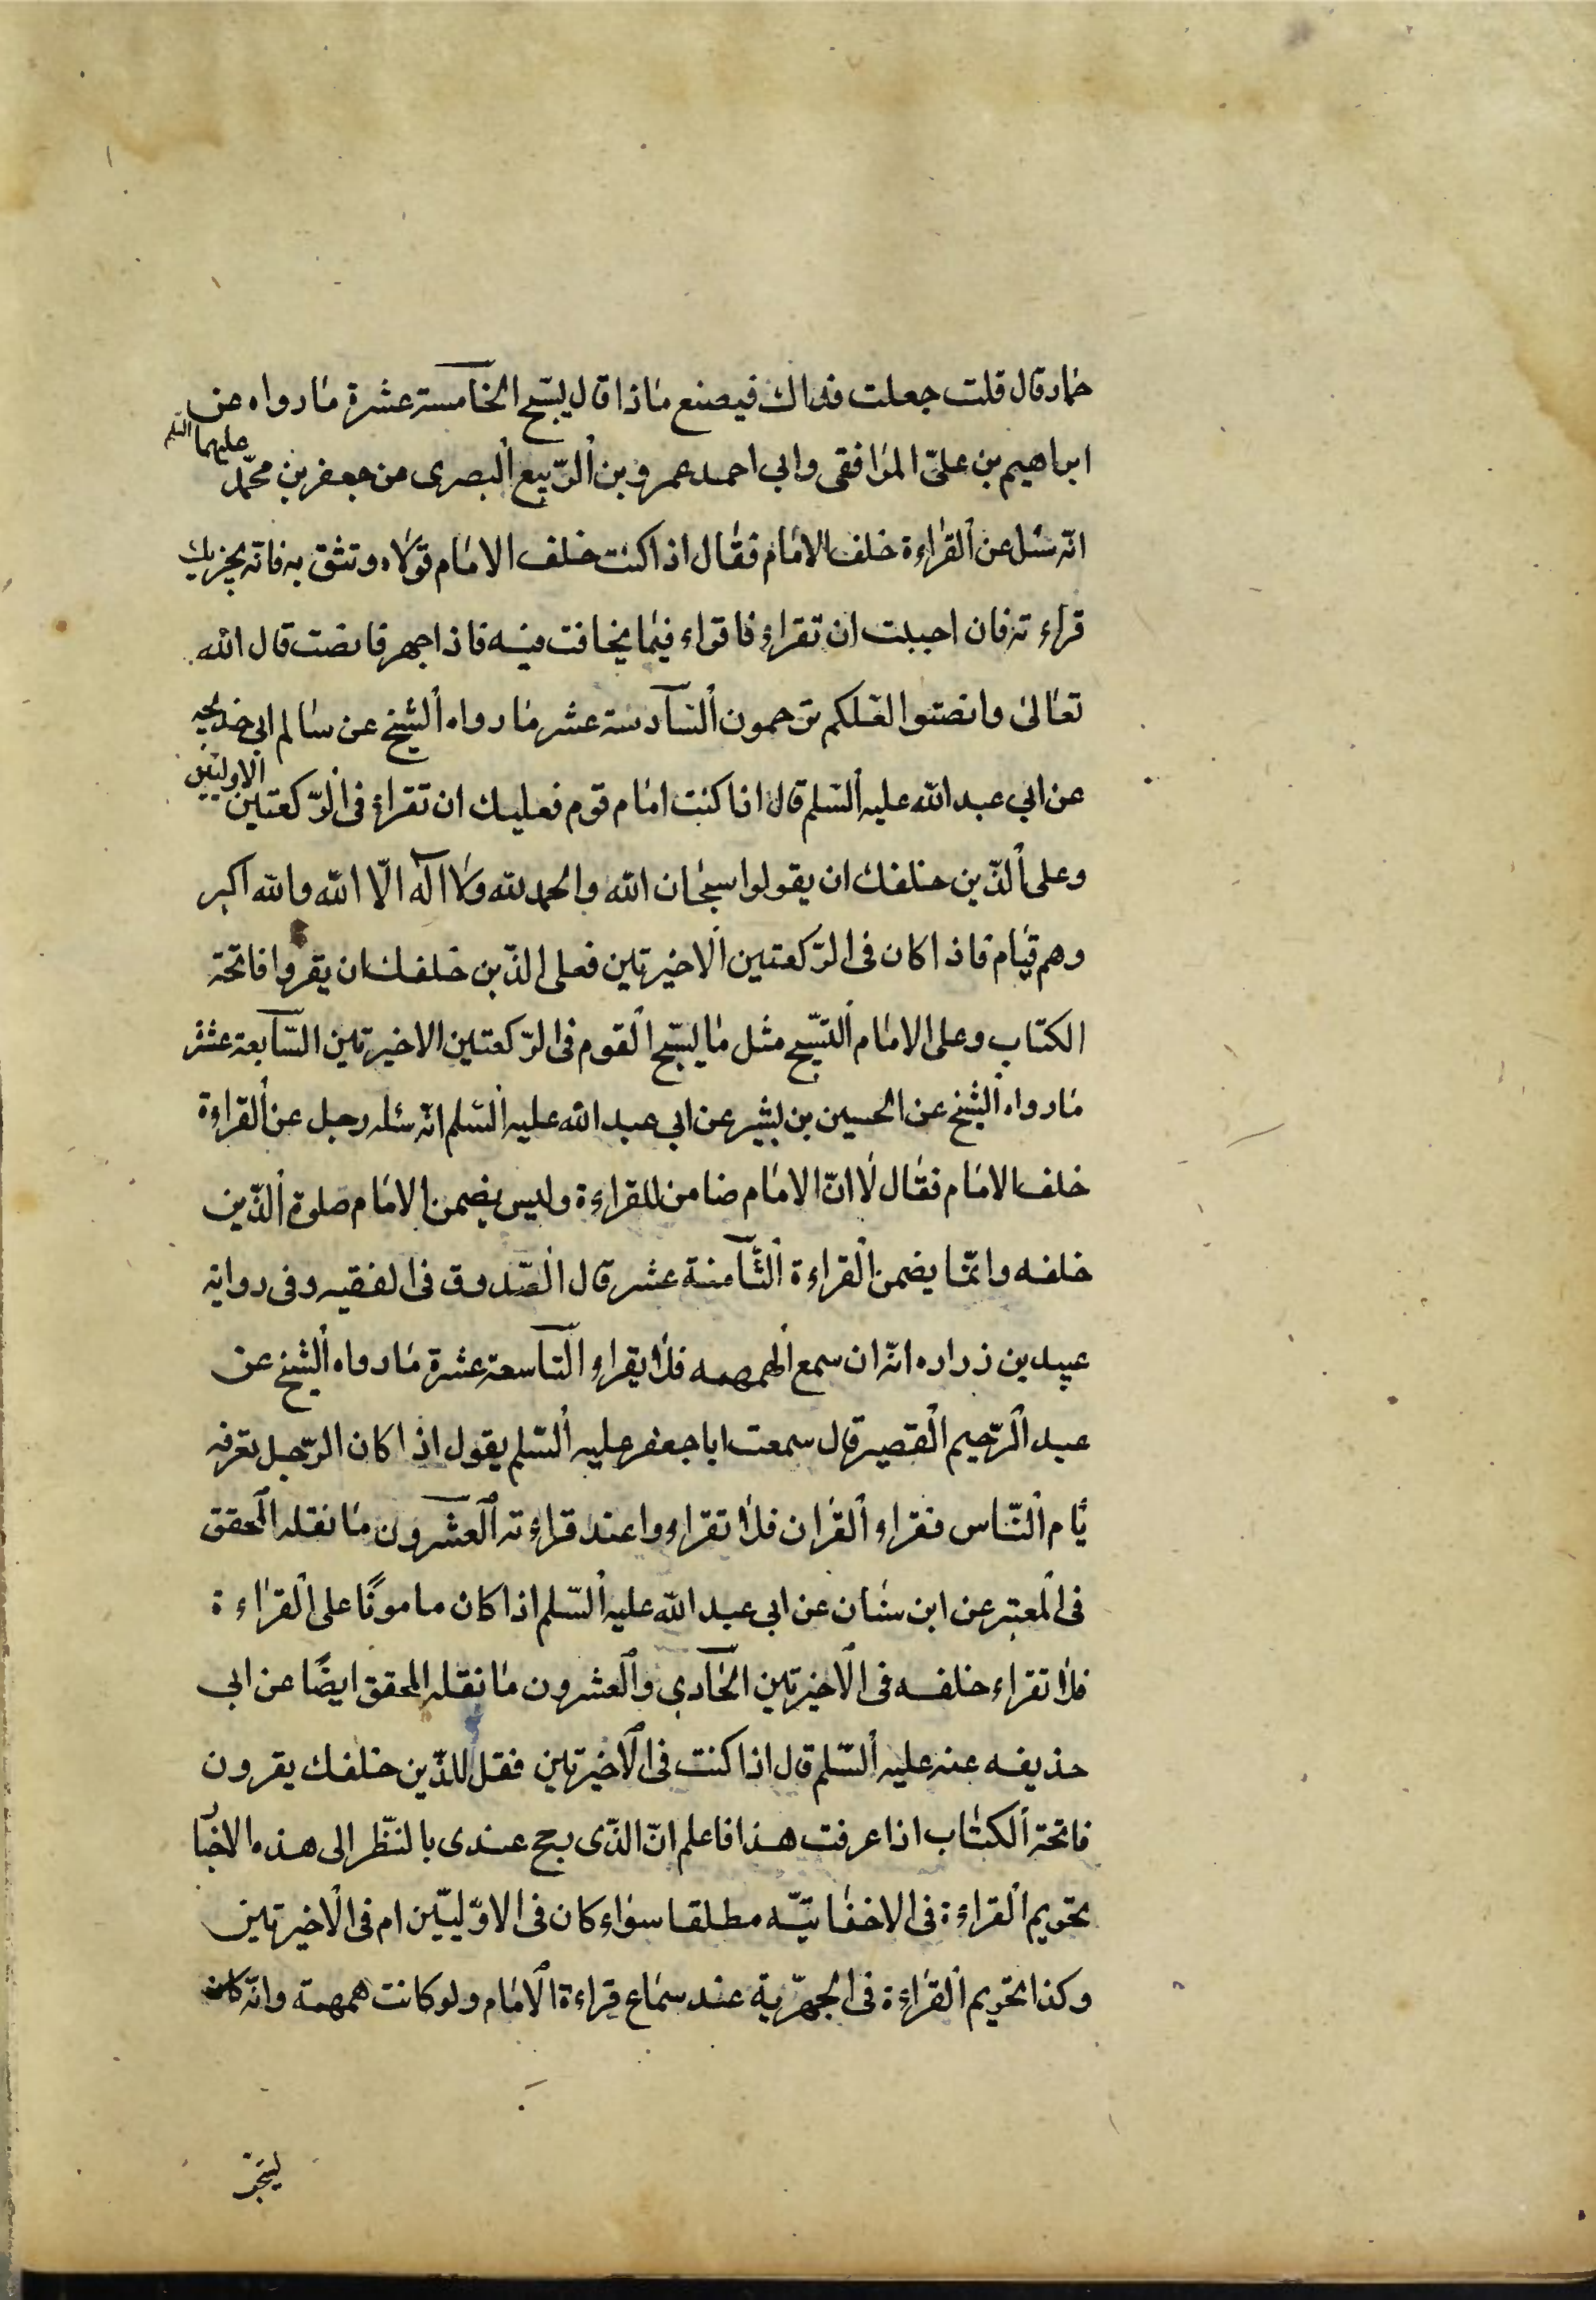 حماد قال قلت جعلت فداك فيصنع ماذا قال يسبّح الخامسة عشرة ما رواه عن
ابراهيم بن علىّ المرافقى وابى احمد عمرو بن الرّبيع البصرى من جعفر بن محمّد عليهما السّلم
انّه سئل عن القراءة خلف الامام فقال اذا كنت خلف الامام تولاه وتثق به فانّه يجزيك
قراءته فان احببت ان تقراء فاقراء فيما يخافت فيه فاذا جهر فانصت قال الله
تعالى وانصتوا لعلكم ترحمون السّادسة عشر ما رواه الشيخ عن سالم ابى خديجه
عن ابى عبد الله عليه السّلم قال اذا كنت امام قوم فعليك ان تقراء فى الرّكعتين الاوليين
وعلى الّذين خلفك ان يقولوا سبحان الله والحمد لله ولا اله الّا الله والله اكبر
وهم قيام فاذا كان فى الرّكعتين الاخيرتين فعلى الذّين خلفك ان يقروا فاتحة
الكتاب وعلى الامام التّسبيح مثل ما يسبّح القوم فى الرّكعتين الاخيرتين السّابعة عشر
ما رواه الشيخ عن الحسين بن بشير عن ابى عبد الله عليه السّلم انّه سئله رجل عن القراءة
خلف الامام فقال لا انّ الامام ضامن للقراءة وليس يضمن الامام صلوة الّذين
خلفه وانّما يضمن القراءة الثّامنة عشر قال الصّدوق فى الفقيه وفى رواية
عبيد بن زراره انّه ان سمع الهمهمه فلا يقراء التّاسعة عشرة ما رواه الشيخ عن
عبد الرّحيم القصير قال سمعت ابا جعفر عليه السّلم يقول اذا كان الرّجل تعرفه
ئام النّاس فقراء القران فلا تقراء واعتد قراءته العشرون ما نقله المحقق
فى المعتبر عن ابن سنان عن ابى عبد الله عليه السّلم اذا كان مامونًا على القراءة
فلا تقراء خلفه فى الاخيرتين الحادى والعشرون ما نقله المحقق ايضًا عن ابى
حذيفه عنه عليه السّلم قال اذا كنت فى الاخيرتين فقل للذّين خلفك يقرون
فاتحة الكتاب اذا عرفت هذا فاعلم انّ الذّى يحج عندى بالنّظر الى هذه الاخبا
تحريم القراءة فى الاخفاتيّه مطلقا سواء كان فى الاوّليّين ام فى الاخيرتين
وكذا تحريم القراءة فى الجهريّة عند سماع قراءة الامام ولو كانت همهمة وانّه كان